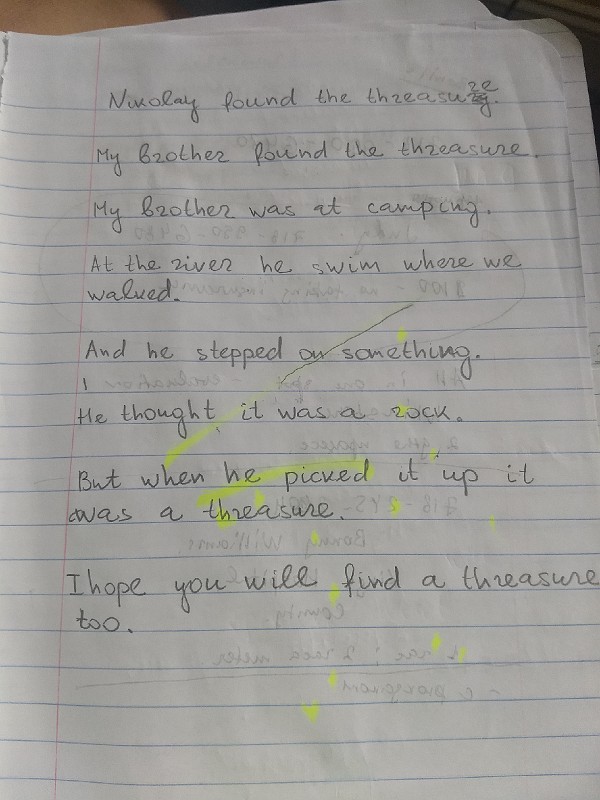 Nikolay found the threasure.
My brother found the threasure.
My brother was at camping.
At the river he swim where we
walked.
And he stepped on something.
He thought it was a rock.
But when he picked it up it
was a threasure.
I hope you will find a threasure
too.